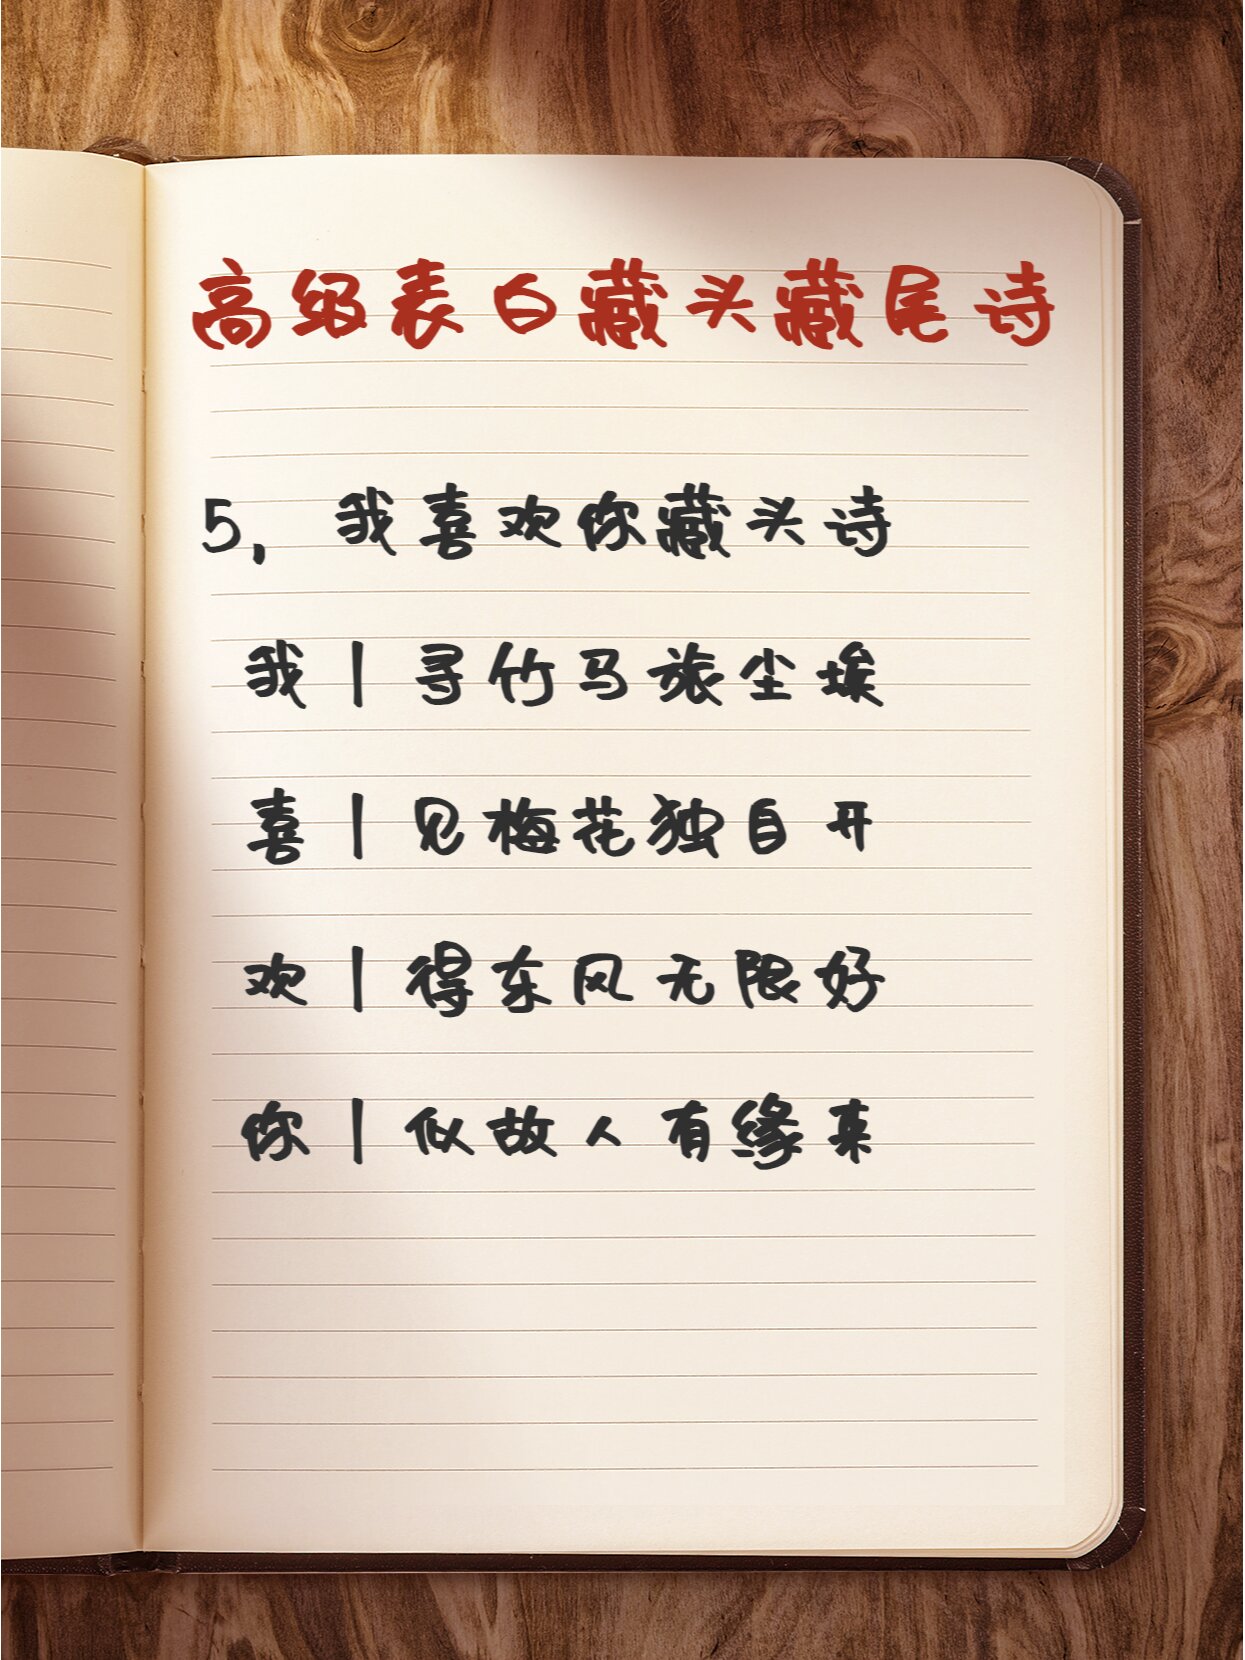 高级表白藏头藏尾诗
5，我喜欢你藏头诗
我｜寻竹马旅尘埃
喜｜见梅花独自开
欢｜得东风无限好
你｜似故人有缘来